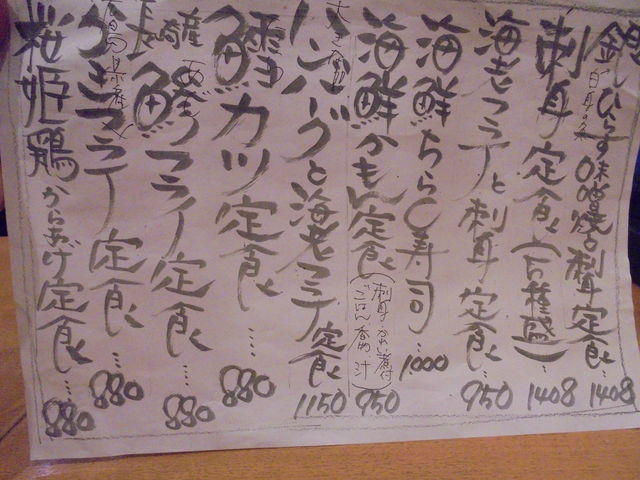 銀ひらす味噌焼と刺身定食… 1408
白身の魚
刺身定食(六種盛)… 1408
海老フライと刺身定食… 950
海鮮ちらし寿司… 1000
海鮮かもん定食(刺身・かぶと煮付 ごはん・香物・汁) 950
ハンバーグと海老フライ定食 1150
鱈カツ定食…. 880
長崎産
鯵フライ定食… 880
広島県産
カキフライ定食… 880
桜姫鶏からあげ定食…. 880